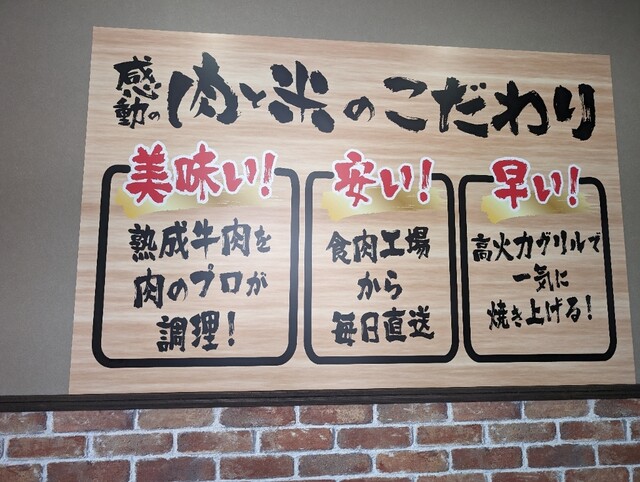 感動の肉と米のこだわり
美味い!
熟成牛肉を
肉のプロが
調理!
安い!
食肉工場
から
毎日直送
早い!
高火力グリルで
一気に
焼き上げる!